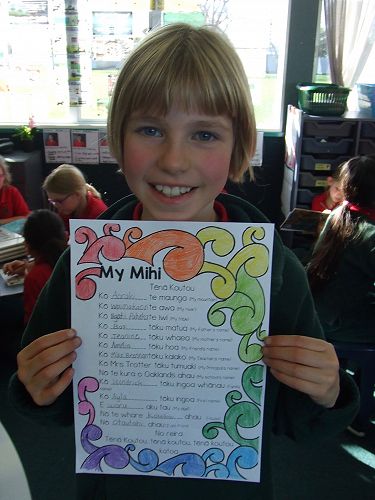 My Mihi
Tena Koutou
Ko Aoraki te maunga (My mountain)
Ko te awa (My river)
Ko te iwi (My tribe)
Ko toku matua (My Father's name)
Ko Jeanine toku whaea (My mother's name)
Ko Amelia toku hoa (My friend's name)
Ko toku kaiako (My Teacher's name)
Ko Mrs Trotter toku tumuaki (My principal's name)
No te kura o Oaklands ahau (My school's name)
Ko toku ingoa whānau
Ko Ayla toku ingoa (First name)
E waru aku tau (My age)
No te whare ahau
No Otautahi ahau
No reira
Tena Koutou, tena koutou, tena koutou
katoa